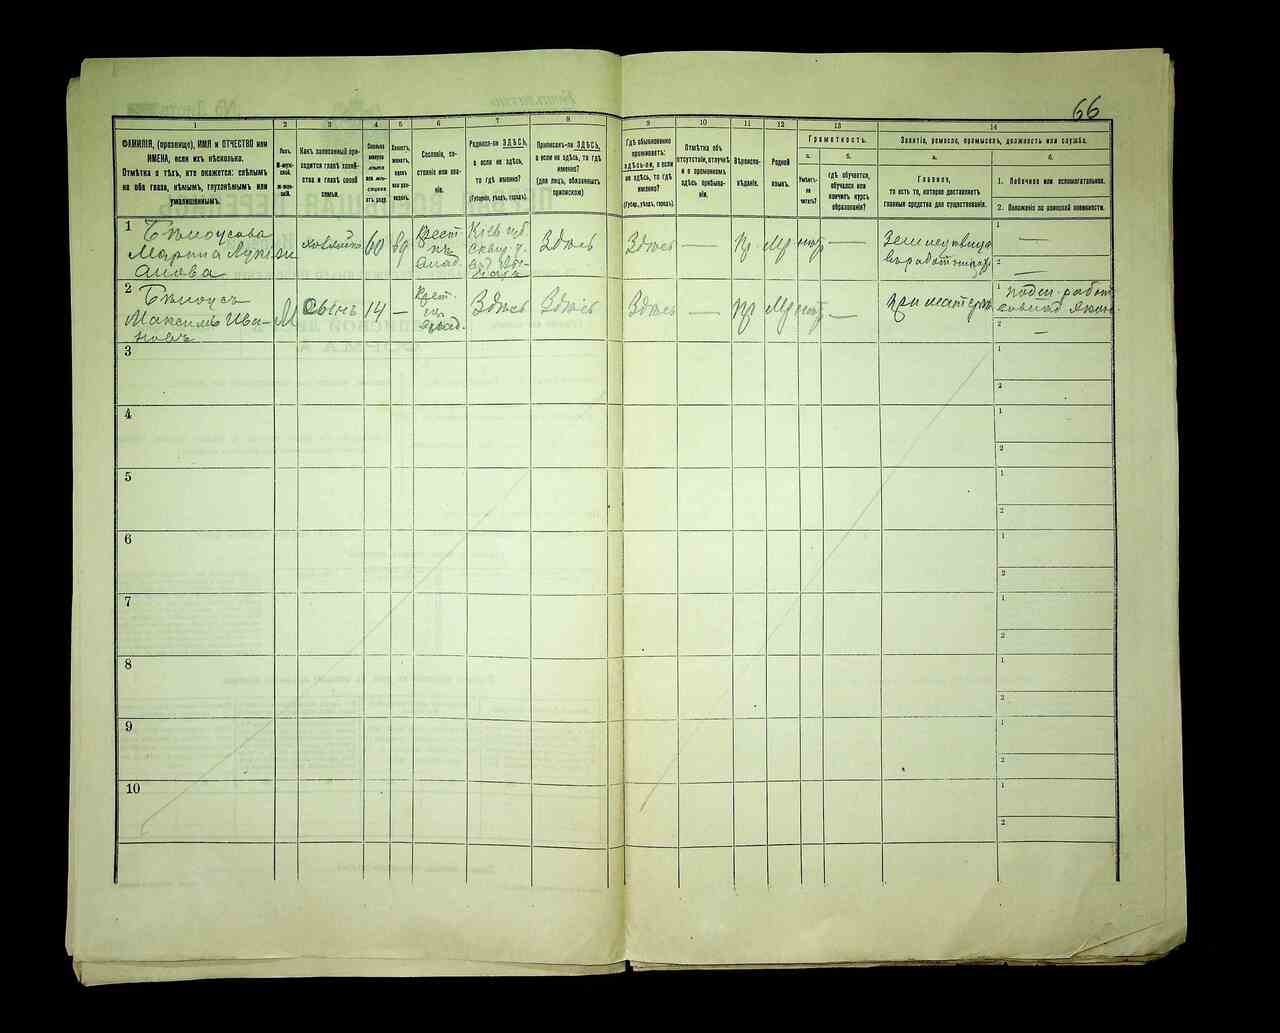 66
1
2
3
4
5
6
7
8
9
10
11
12
13
14
ФАМИЛІЯ, (прозвище), ИМЯ и ОТЧЕСТВО или
ИМЕНА, если ихъ нѣсколько.
Отмѣтка о тѣхъ, кто окажется: слѣпымъ
на оба глаза, нѣмымъ, глухонѣмымъ или
умалишеннымъ.
Полъ.
Какъ записанный при-
ходится главѣ хозяй-
ства и главѣ своей
семьи.
Сословіе, со-
стояніе или зва-
ніе.
Родился-ли ЗДѢСЬ,
а если не здѣсь,
то гдѣ именно?
(Губернія, уѣздъ, городъ).
Приписанъ-ли ЗДѢСЬ,
а если не здѣсь, то гдѣ
именно?
(для лицъ, обязанныхъ
припискою)
Гдѣ обыкновенно
проживаетъ:
здѣсь-ли, а если
не здѣсь, то гдѣ
именно?
(Губер., уѣздъ, городъ).
Отмѣтка объ
отсутствіи, отлучкѣ
и о временномъ
здѣсь пребыва-
ніи.
Вѣроиспо-
вѣданіе.
Родной
языкъ.
Грамотность.
а.
Умѣетъ-
ли
читать?
б.
Гдѣ обучается,
обучался или
кончилъ курсъ
образованія?
Занятіе, ремесло, промыселъ, должность или служба.
а.
Главное,
то есть то, которое доставляетъ
главныя средства для существованія.
б.
1. Побочное или вспомогательное.
2. Положеніе по воинской повинности.
1
Бѣлоусова
Марина Лукі
анова
хозяйка 60 Крест
Здѣсь Здѣсь — пр Мр нѣт —
1 —
2 —
2
Бѣлоусъ
Максимъ Ива-
новъ
М Сынъ 14 — Крест.
Здѣсь Здѣсь Здѣсь — пр Мр нѣт —
при матери
1
2 —
3
1
2
4
1
2
5
1
2
6
1
2
7
1
2
8
1
2
9
1
2
10
1
2